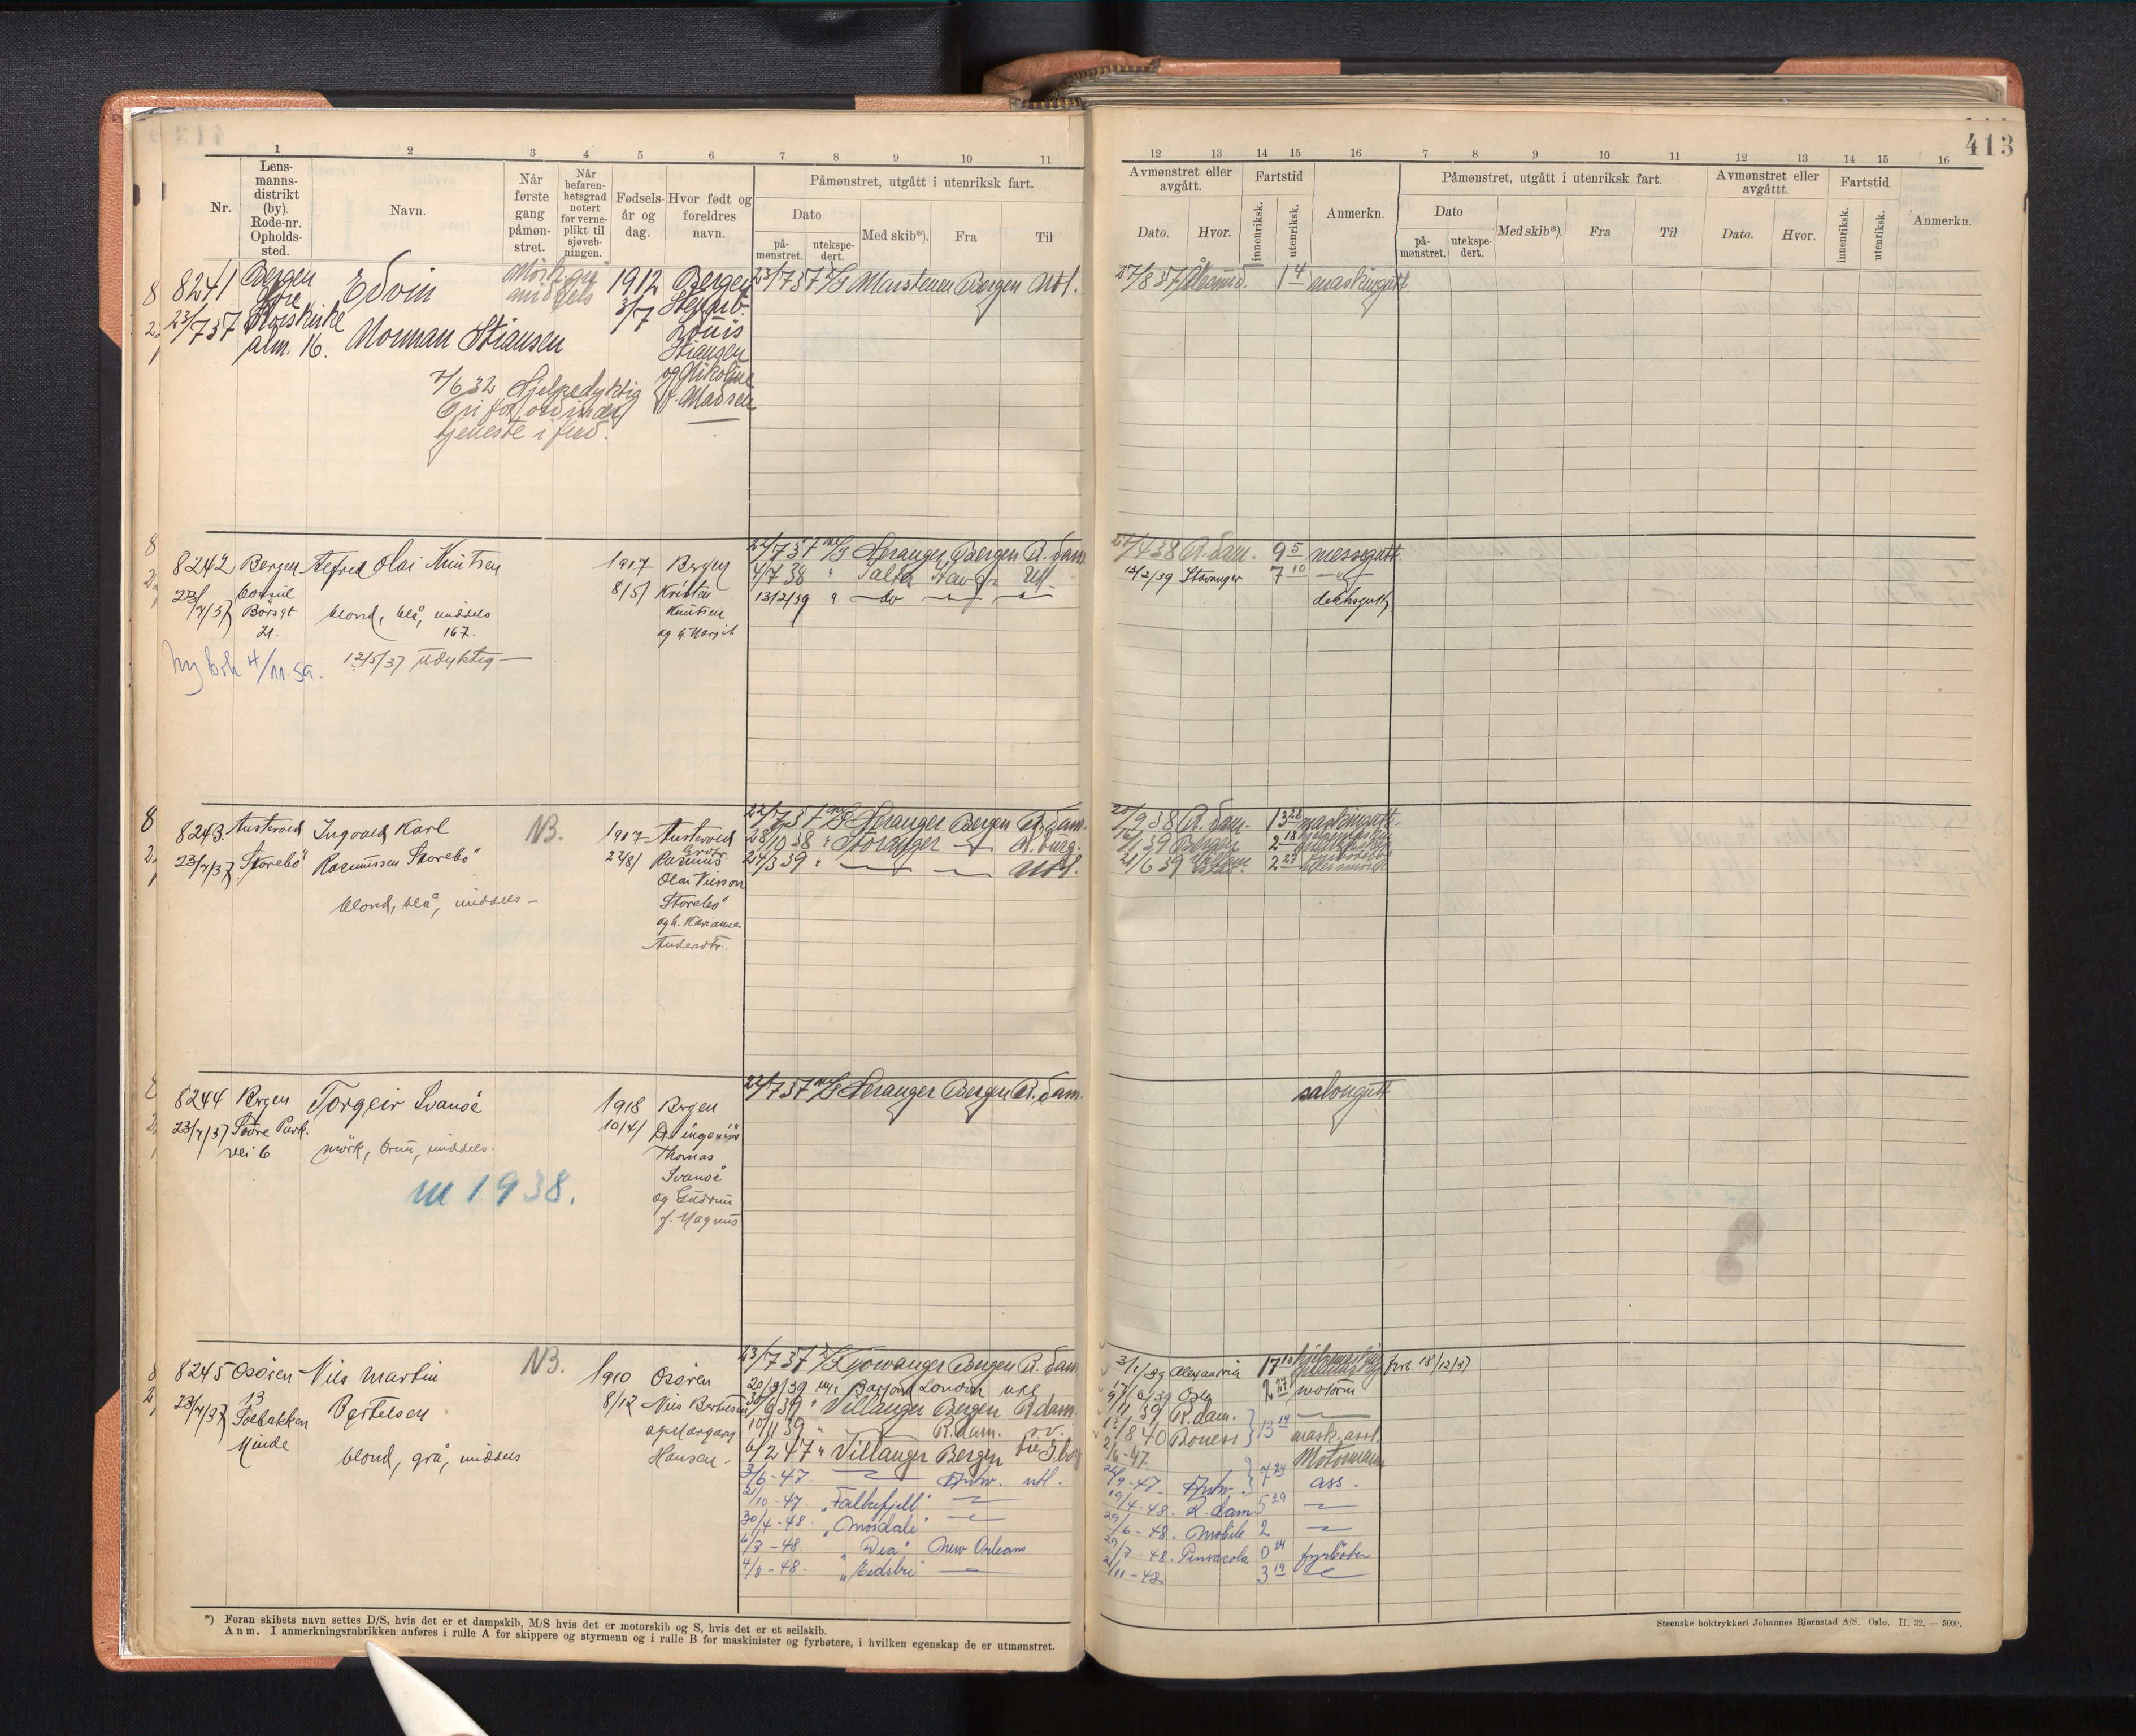 413
1 2 3 4 5 6 7 8 9 10 11
12 13 14 15 16 7 8 9 10 11 12 13 14 15 16
Nr.
Lens-
manns-
distrikt
(by).
Rode-nr.
Opholds-
sted.
Navn.
Når
første
gang
påmøn-
stret.
Når
befaren-
hetsgrad
notert
for verne-
plikt til
sjøveb-
ningen.
Fødsels-
år og
dag.
Hvor født og
foreldres
navn.
Påmønstret, utgått i utenriksk fart.
Dato
på-
mønstret.
utekspe-
dert.
Med skib*).
Fra
Til
Avmønstret eller
avgått.
Dato.
Hvor.
Fartstid
innenriksk.
utenriksk.
Anmerkn.
Påmønstret, utgått i utenriksk fart.
Dato
på-
mønstret.
utekspe-
dert.
Med skib*).
Fra
Til
Avmønstret eller
avgåttt.
Dato.
Hvor.
Fartstid
innenriksk.
utenriksk.
Anmerkn.
8241
23/7 37
Bergen
alm. 16.
Edvin
Norman Stiansen
middels
1912
3/7
Bergen
Louis
Stiansen
og Nikoline
f. Madsen
7/6 32 Hjelpedyktig
Fri for ordinær
tjeneste i fred.
23/7 37 Marstenen Bergen Utl.
27/8 37 Ålesund. 1 4 maskingutt
8242 Bergen Alfred Olai Knutsen
23/7/37 Børsgt
21.
blond, blå, middels
167.
12/5/37 udyktig —
ny bok 4/11-59.
1917
8/5
Bergen
Kristen
Knutsen
og h. Margit
22/7 37 M/S Heranger Bergen R.dam
4/7 38 " Salta Stavgr Utl.
13/2/39 " do
27/4 38 R.dam. 9 5 messegutt
13/2/39 Stavanger 7 10
dekksgutt
8243. Austevold Ingvald Karl
23/7/37 Storebø Rasmussen Storebø
NB.
blond, blå, middels —
1917
Austevold
Rasmus
Olai Nilsson
Storebø
og h. Karianne
Andersdtr.
22/7 37 M/S Heranger Bergen R.dam.
28/10 38 " Storanger
24/3 39 " Utl.
20/9 38 R.dam. 13 28 maskingutt
16/1 39 Bergen 2 18
21/6 39 2 27
8244 Bergen Torgeir Svanøe
23/7/37 Store Park.
vei 6
mørk, brun, middels.
m 1938.
1918
10/4
Bergen
ingeniør
Thomas
Svanøe
og Gudrun
f. Magnus
22/7 37 M/S Heranger Bergen R.dam.
salongutt
8245 Osøren Nils Martin
23/7/37 Solbakken Bertelsen
Minde
NB.
blond, grå, middels
1910
8/12
Osøren
Nils Bertelsen
og Margary
Hansen
23/7 37 Hyovanger Bergen R.dam
20/3/39 London utl
30/6 39 " Villanger Bergen R.dam
10/11 39 " R.dam. s.v.
6/2 47 " Villanger Bergen
3/6-47. Antw. utl.
2/10-47. "Falkefjell"
30/4-48. "Mosdale"
6/7-48. "Dea" New Orleans
4/8-48. "Eidsbri"
3/1/39 Alexandria 17 10 fort. 18/12/37
17/6/39 Oslo 2 27 motorm
9/11 39 R.dam.
13/8 40 Boness 13 14 mask. asst.
2/6-47 Motormann
24/9-47. Antw. 7 24 ass.
19/4-48. R.dam 5 29
29/6-48. Mobile 2
29/7-48. Pensacola 0 24 fyrbøter
21/11-48 3 19
*) Foran skibets navn settes D/S, hvis det er et dampskib, M/S hvis det er motorskib og S, hvis det er et seilskib.
Anm. I anmerkningsrubrikken anføres i rulle A for skippere og styrmenn og i rulle B for maskinister og fyrbøtere, i hvilken egenskap de er utmønstret.
Steenske boktrykkeri Johannes Bjørnstad A/S. Oslo. II. 32. — 5000.